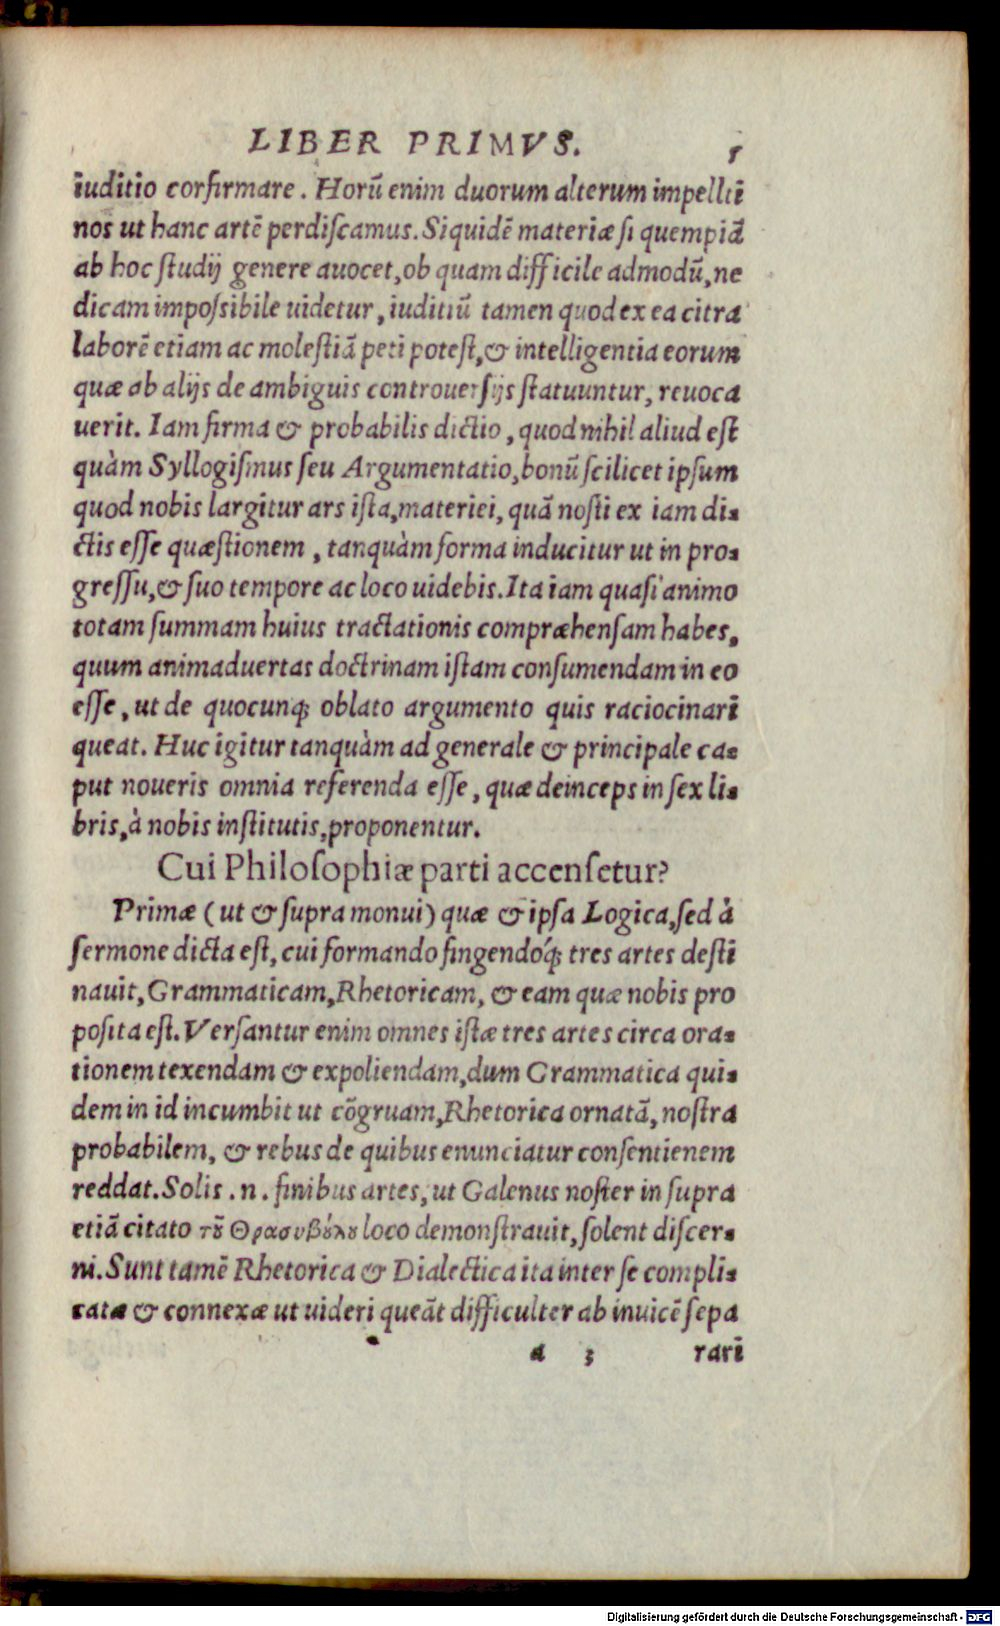 LIBER PRIMVS. 5
iuditio corfirmare. Horũ enim duorum alterum impellit
nos ut hanc artẽ perdiſcamus. Siquidẽ materiæ ſi quempiã
ab hoc ſtudij genere auocet, ob quam difficile admodũ, ne
dicam impoſsibile uidetur, iuditiũ tamen quod ex ea citra
laborẽ etiam ac moleſtiã peti poteſt, & intelligentia eorum
quæ ab alijs de ambiguis controuerſijs ſtatuuntur, reuoca
uerit. Iam firma & probabilis dictio, quod nihil aliud eſt
quàm Syllogiſmus ſeu Argumentatio, bonũ ſcilicet ipſum
quod nobis largitur ars iſta, materiei, quã noſti ex iam di-
ctis eſſe quæſtionem, tanquàm forma inducitur ut in pro-
greſſu, & ſuo tempore ac loco uidebis. Ita iam quaſi animo
totam ſummam huius tractationis compræhenſam habes,
quum animaduertas doctrinam iſtam conſumendam in eo
eſſe, ut de quocunqꝫ oblato argumento quis raciocinari
queat. Huc igitur tanquàm ad generale & principale ca-
put noueris omnia referenda eſſe, quæ deinceps in ſex li-
bris, à nobis inſtitutis, proponentur.
Cui Philoſophiæ parti accenſetur?
Primæ (ut & ſupra monui) quæ & ipſa Logica, ſed à
ſermone dicta eſt, cui formando fingendóqꝫ tres artes deſti
nauit, Grammaticam, Rhetoricam, & eam quæ nobis pro
poſita eſt. Verſantur enim omnes iſtæ tres artes circa ora-
tionem texendam & expoliendam, dum Grammatica qui-
dem in id incumbit ut cõgruam, Rhetorica ornatã, noſtra
probabilem, & rebus de quibus enunciatur conſentienem
reddat. Solis .n. finibus artes, ut Galenus noſter in ſupra
etiã citato τȣ̃ Θρασυβȣ́λȣ loco demonſtrauit, ſolent diſcer-
ni. Sunt tamẽ Rhetorica & Dialectica ita inter ſe compli-
catæ & connexæ ut uideri queãt difficulter ab inuicẽ ſepa
a 3 rari
Digitalisierung gefördert durch die Deutsche Forschungsgemeinschaft - DFG